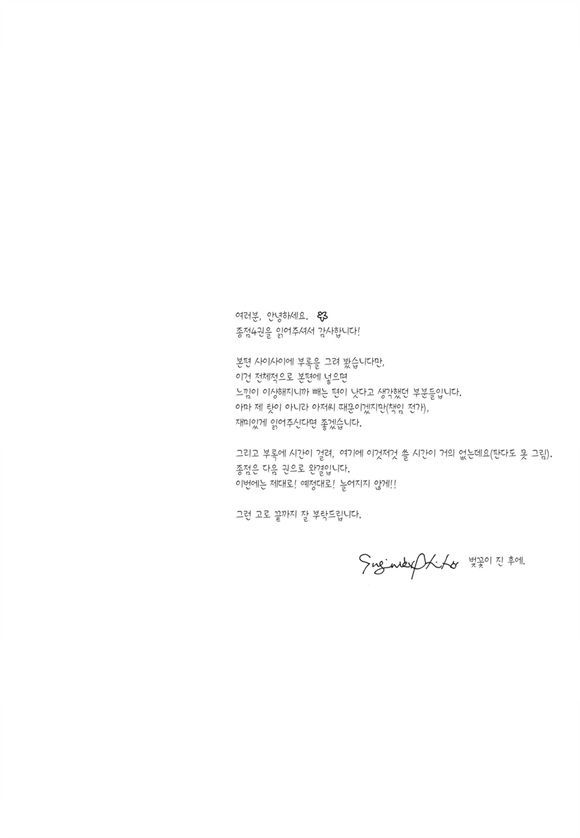 여러분, 안녕하세요.
종점4권을 읽어주셔서 감사합니다!
본편 사이사이에 부록을 그려 봤습니다만,
이건 전체적으로 본편에 넣으면
느낌이 이상해지니까 빼는 편이 낫다고 생각했던 부분들입니다.
아마 제 탓이 아니라 아저씨 때문이겠지만(책임 전가),
재미있게 읽어주신다면 좋겠습니다.
그리고 부록에 시간이 걸려, 여기에 이것저것 쓸 시간이 거의 없는데요(판다도 못 그림).
종점은 다음 권으로 완결입니다.
이번에는 제대로! 예정대로! 늘어지지 않게!!
그런 고로 끝까지 잘 부탁드립니다.
벚꽃이 진 후에.